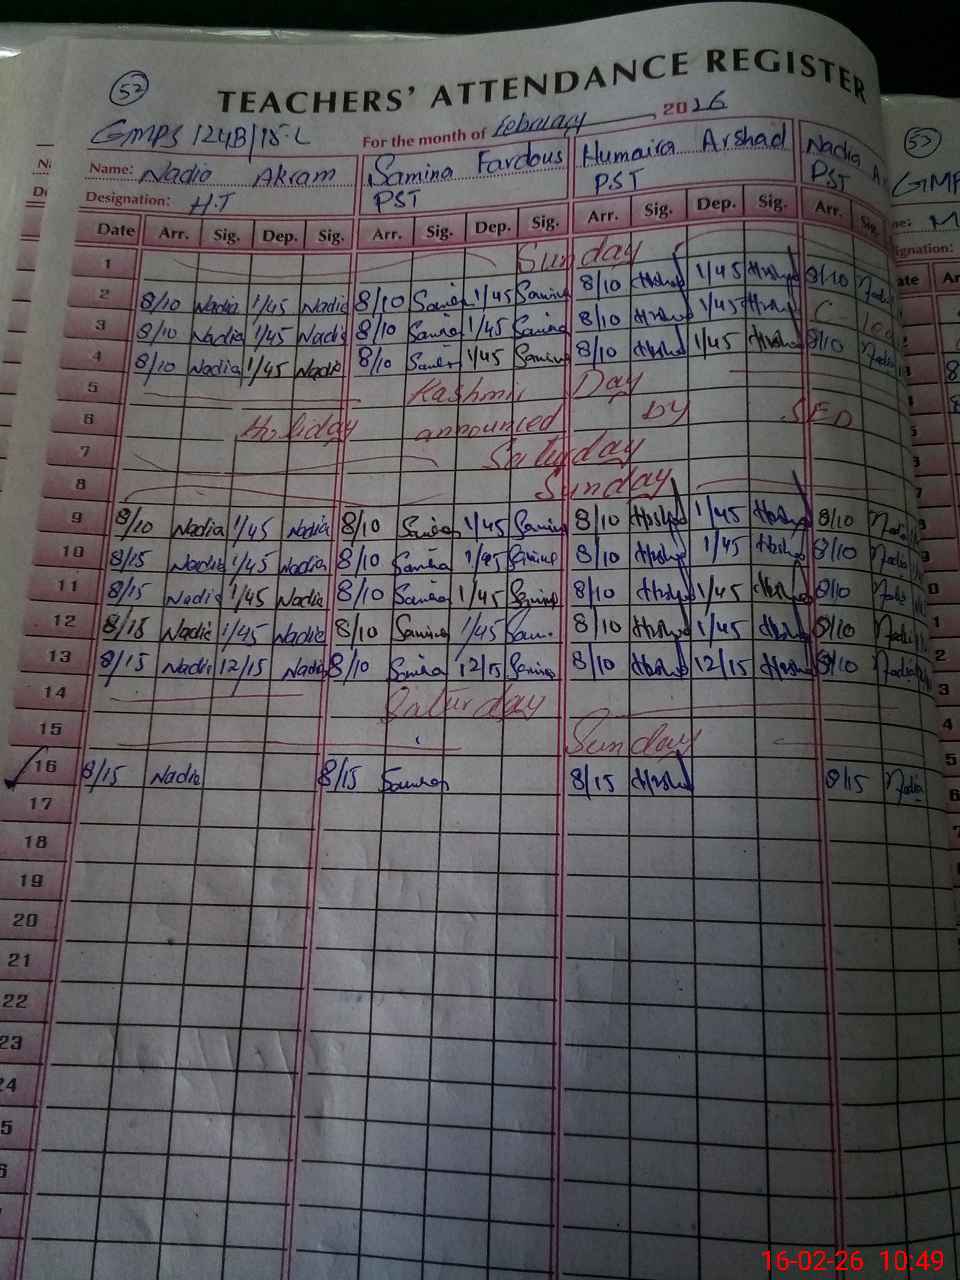 52
TEACHERS' ATTENDANCE REGISTER
GMPS 124B/15-L
For the month of February 2026
Name: Nadia Akram Samina Fardous Humaira Arshad Nadia A.
Designation: H.T PST PST PST
Date Arr. Sig. Dep. Sig. Arr. Sig. Dep. Sig. Arr. Sig. Dep. Sig. Arr. Sig.
1 Sunday
2 8/10 Nadia 1/45 Nadia 8/10 Samina 1/45 Samina 8/10 Hrshd 1/45 Hrshd 8/10 Nadia
3 8/10 Nadia 1/45 Nadia 8/10 Samina 1/45 Samina 8/10 Hrshd 1/45 Hrshd C-
4 8/10 Nadia 1/45 Nadia 8/10 Samina 1/45 Samina 8/10 Hrshd 1/45 Hrshd 8/10 Nadia
5 Kashmir Day
6 Holiday announced by SED
7 Saturday
8 Sunday
9 8/10 Nadia 1/45 Nadia 8/10 Samina 1/45 Samina 8/10 Hrshd 1/45 Hrshd 8/10 Nadia
10 8/15 Nadia 1/45 Nadia 8/10 Samina 1/45 Samina 8/10 Hrshd 1/45 Hrshd 8/10 Nadia
11 8/15 Nadia 1/45 Nadia 8/10 Samina 1/45 Samina 8/10 Hrshd 1/45 Hrshd 8/10 Nadia
12 8/15 Nadia 1/45 Nadia 8/10 Samina 1/45 Sam. 8/10 Hrshd 1/45 Hrshd 8/10 Nadia
13 8/15 Nadia 12/15 Nadia 8/10 Samina 12/15 Samina 8/10 Hrshd 12/15 Hrshd 8/10 Nadia
14 Saturday
15 Sunday
16 8/15 Nadia 8/15 Samina 8/15 Hrshd 8/15 Nadia
17
18
19
20
21
22
23
24
16-02-26 10:49